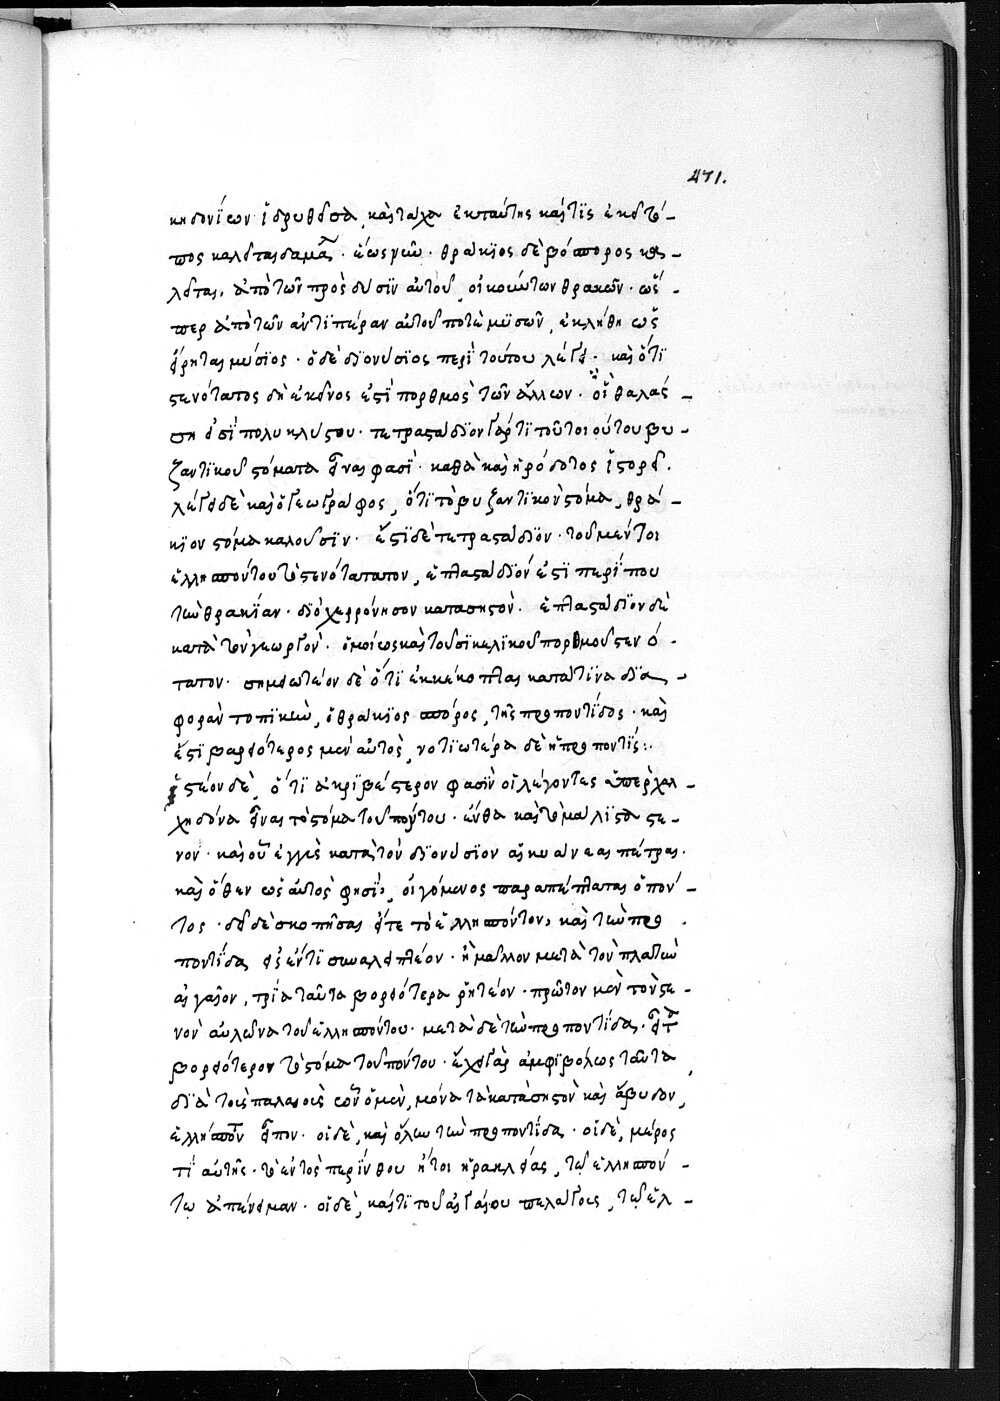 471.
κηδονίων ἱδρυθεῖσα, καὶ τάχα ἐκ ταύτης καί τις ἐκεῖ τό-
πος καλεῖται δάμαλις. ἕως νῦν. θράκιος δὲ βόσπορος κα-
λεῖται, ἀπὸ τῶν πρὸς δύσιν αὐτοῦ, οἰκούντων θρακῶν. ὥσ-
περ ἀπὸ τῶν ἀντιπέραν αὐτοῦ ποτὲ μυσῶν, ἐκλήθη ὡς
εἴρηται μύσιος. ὁ δὲ διονύσιος περὶ τούτου λέγει. καὶ ὅτι
στενότατος δὴ ἐκεῖνος ἐστὶ πορθμὸς τῶν ἄλλων. οἳ θαλάσ-
ση εἰσὶ πολυκλύστου. τετραστάδιον γάρ τι τοῦτο τούτου βυ-
ζαντικοῦ στόματα εἶναι φασί. καθὰ καὶ ἡρόδοτος ἱστορεῖ.
λέγει δὲ καὶ ὁ γεωγράφος, ὅτι τὸ βυζαντικὸν στόμα, θρά-
κιον στόμα καλοῦσιν. ἔστι δὲ τετραστάδιον. τοῦ μέντοι
ἑλλησπόντου τὸ στενότατον, ἑπταστάδιόν ἐστι περί που
τὴν θρακίαν. διὸ χερρόνησον κατὰ σηστόν. ἑπταστάδιον δὲ
κατὰ τὸν γεωργὸν. ὁμοίως καὶ τοῦ σικελικοῦ πορθμοῦ στενό-
τατον. σημειωτέον δὲ ὅτι ἐκκέκοπται κατά τινα δια-
φορὰν τοπικὴν, ὁ θράκιος πόρος, τῆς προποντίδος. καὶ
ἔστι βορειότερος μὲν αὐτὸς, νοτιωτέρα δὲ ἡ προποντίς:
ἰστέον δὲ, ὅτι ἀκριβέστερον φασὶν οἱ λέγοντες ὑπὲρ χαλ-
κηδόνα εἶναι τὸ στόμα τοῦ πόντου. ἔνθα καὶ τὸ μάλιστα στε-
νόν. καὶ οὗ ἐγγὺς κατὰ τὸν διονύσιον αἱ κυάνεαι πέτραι.
καὶ ὅθεν ὡς αὐτὸς φησὶν, οἰγόμενος παραπέπταται ὁ πόν-
τος. δεῖ δὲ σκοπῆσαι εἴτε τὸν ἑλλήσποντον, καὶ τὴν προ-
ποντίδα εἰς ἕν τι συναλειπτέον. ἢ μᾶλλον μετὰ τὸν πλατὺν
αἰγαῖον, τρία ταῦτα βορειότερα ῥητέον. πρῶτον μὲν τὸν στε-
νὸν αὐλῶνα τοῦ ἑλλησπόντου. μετὰ δὲ τὴν προποντίδα. εἶτα
βορειότερον τὸ στόμα τοῦ πόντου. ἔχει γὰρ ἀμφιβόλως ταῦτα
διὰ τοὺς παλαιοὺς ὧν οἱ μὲν, μόνα τὰ κατὰ σηστὸν καὶ ἄβυδον,
ἑλλήσποντον εἶπον. οἱ δὲ, καὶ ὅλην τὴν προποντίδα. οἱ δὲ, μέρος
τι αὐτῆς. τὸ ἐντὸς περίνθου ἤτοι ἡρακλείας, τῷ ἑλλησπόν-
τῳ ἀπένειμαν. οἱ δὲ, καί τι τοῦ αἰγαίου πελάγους, τῷ ἑλ-